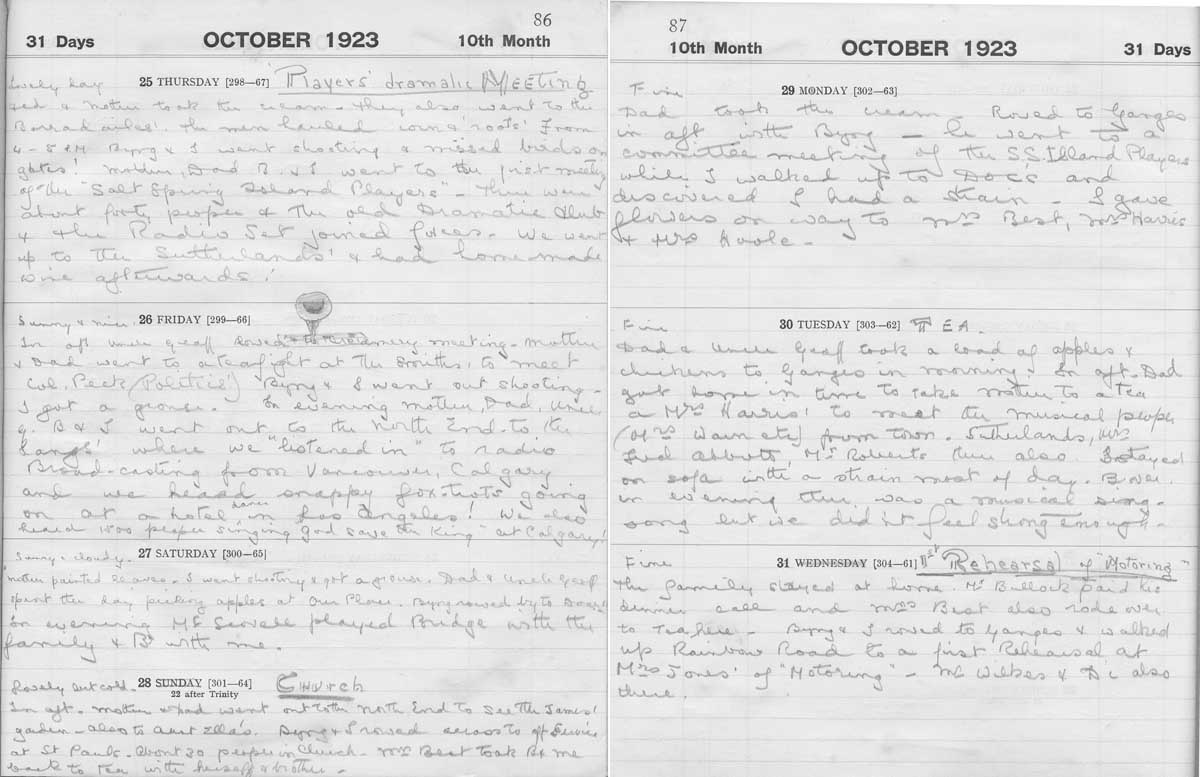 86
31 Days OCTOBER 1923 10th Month
Lovely day 25 THURSDAY [298—67] Players' dramatic MEETING
Dad & mother took the cream - they also went to the
The men hauled some 'roots' from
4 - 5 P.M. Byng & I went shooting & missed birds on
gates! Mother, Dad B. & I went to the first meeting
of the "Salt Spring Island Players" - There were
about forty people & the old Dramatic Club
& the Radio Set joined forces. We went
up to the Sutherlands' & had home-made
wine afterwards!
Sunny & nice. 26 FRIDAY [299—66]
In aft. Uncle Geoff meeting - mother
& Dad went to a teafight at the Smiths, to meet
Col. Peck (Politics!) Byng & I went out shooting -
I got a grouse. In evening mother, Dad, Uncle
g. B & I went out to the North End to the
Langs' where we "listened in" to radio
Broad-casting from Vancouver, Calgary
and we heard snappy fox-trots going
on at a hotel dance in Los Angeles! We also
heard 1500 people singing God save the King" at Calgary!
Sunny & cloudy. 27 SATURDAY [300—65]
Mother painted leaves. I went shooting & got a grouse. Dad & Uncle Geoff
spent the day picking apples at our Place. Byng rowed by to
In evening Mr played Bridge with the
family & B. with me.
Lovely but cold. 28 SUNDAY [301—64] CHURCH
22 after Trinity
In aft. mother & Dad went out to the North End to see the James'
garden - also to Aunt Ella's. Byng & I rowed across to aft Service
at St Pauls. About 30 people in Church - Mrs Best took B & me
back to tea with herself & brother -
87
10th Month OCTOBER 1923 31 Days
Fine 29 MONDAY [302—63]
Dad took the cream - Rowed to Ganges
in aft with Byng — he went to a
committee meeting of the S.S. Island Players
while I walked up to Docs and
discovered I had a strain - I gave
flowers on way to Mrs Best, Mrs Harris
& Mrs
Fine 30 TUESDAY [303—62] TEA.
Dad & Uncle Geoff took a load of apples &
chickens to Ganges in morning. In aft. Dad
got home in time to take mother to a Tea
a Mrs Harris' to meet the musical people
(Mrs etc) from town. Sutherlands, Mrs
Ted Abbott, Mr Roberts there also. I stayed
on sofa with a strain most of day. B. over.
in evening there was a musical sing-
song but we didn't feel strong enough -
Fine 31 WEDNESDAY [304—61] 1st Rehearsal of "Motoring"
The family stayed at home. Mr Bullock paid his
dinner call and Mrs Best also rode over
to Tea here - Byng & I rowed to Ganges & walked
up Rainbow Road to a first Rehearsal at
Mrs Jones' of "Motoring" - Mr Wilkes & Di also
there.